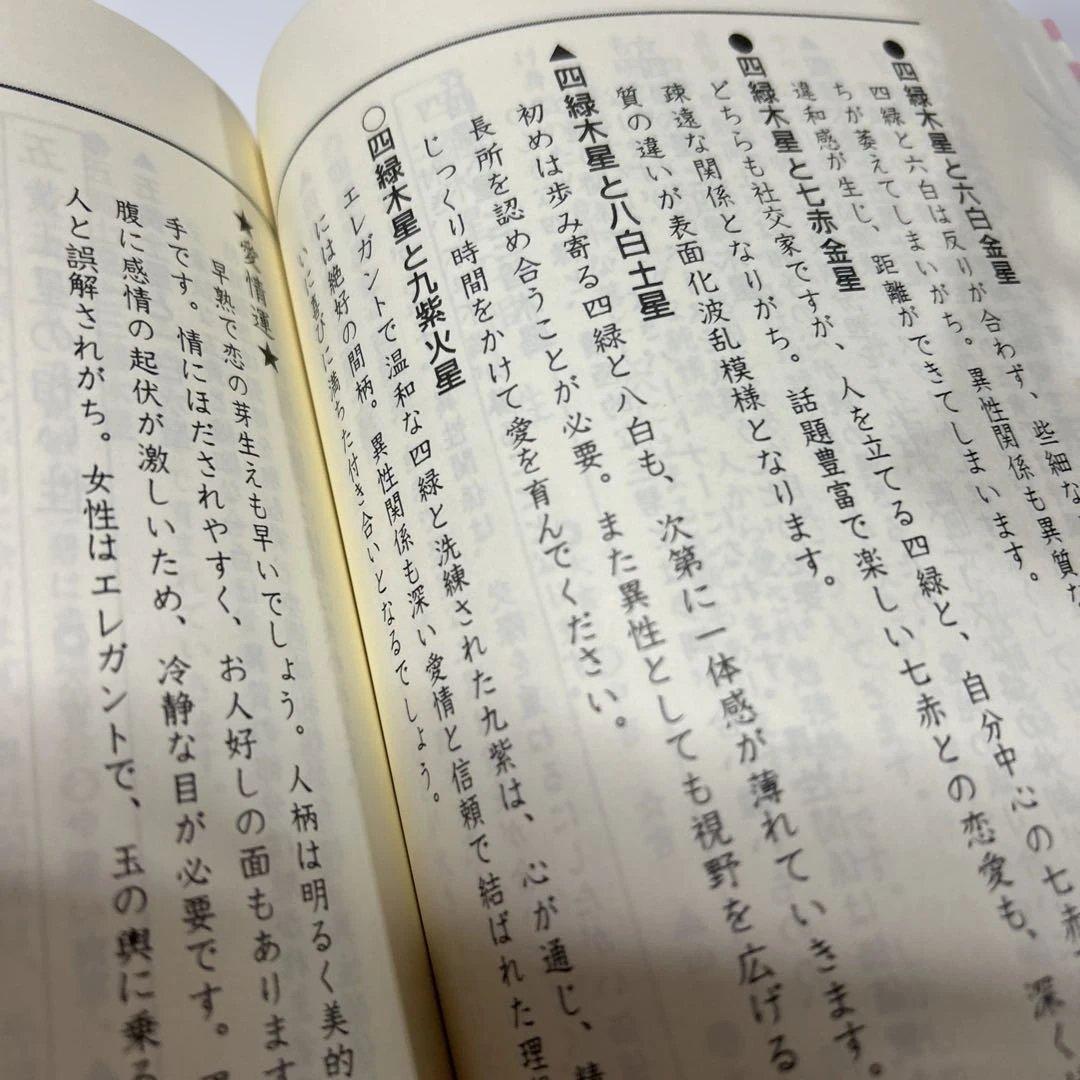 ●四緑木星と六白金星
四緑と六白は反りが合わず、些細な
ちが萎えてしまいがち。異性関係も異質な
違和感が生じ、距離ができてしまいます。
●四緑木星と七赤金星
どちらも社交家ですが、人を立てる四緑と、自分中心の七赤
疎遠な関係となりがち。話題豊富で楽しい七赤との恋愛も、深く
質の違いが表面化波乱模様となります。
▲四緑木星と八白土星
初めは歩み寄る四緑と八白も、次第に一体感が薄れていきます。
長所を認め合うことが必要。また異性としても視野を広げる
じっくり時間をかけて愛を育んでください。
○四緑木星と九紫火星
エレガントで温和な四緑と洗練された九紫は、心が通じ、
には絶好の間柄。異性関係も深い愛情と信頼で結ばれた理
いに喜びに満ちた付き合いとなるでしょう。
★愛情運★
早熟で恋の芽生えも早いでしょう。人柄は明るく美的
手です。情にほだされやすく、お人好しの面もあります
腹に感情の起伏が激しいため、冷静な目が必要です。
人と誤解されがち。女性はエレガントで、玉の輿に乗る